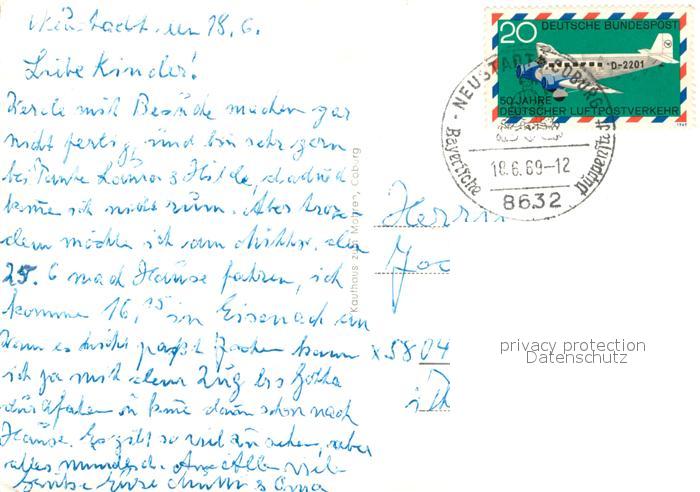 Neustadt, den 18.6.
Liebe Kinder!
Werde mit Besuche machen gar
nicht fertig, und bin sehr gern
bei Tante Laura & Hilde, dadurch
komme ich nicht rum. Aber trotz
dem möchte ich am den
25.6 nach Hause fahren, ich
komme 16,15 in Eisenach an
Wenn es nicht paßt kann
ich ja mit dem Zug bis Gotha
durchfahren u. komme dann schon nach
Hause. Es gibt so viel zu sehen, aber
alles mündlich. Allen viele
Eure Mutti & Oma
Kaufhaus zum Mohren, Coburg
Herrn
x 5804
20
DEUTSCHE BUNDESPOST
D-2201
50 JAHRE
DEUTSCHER LUFTPOSTVERKEHR
1969
- NEUSTADT B. COBURG -
Bayerische Puppenstadt
18.6.69-12
8632
privacy protection
Datenschutz